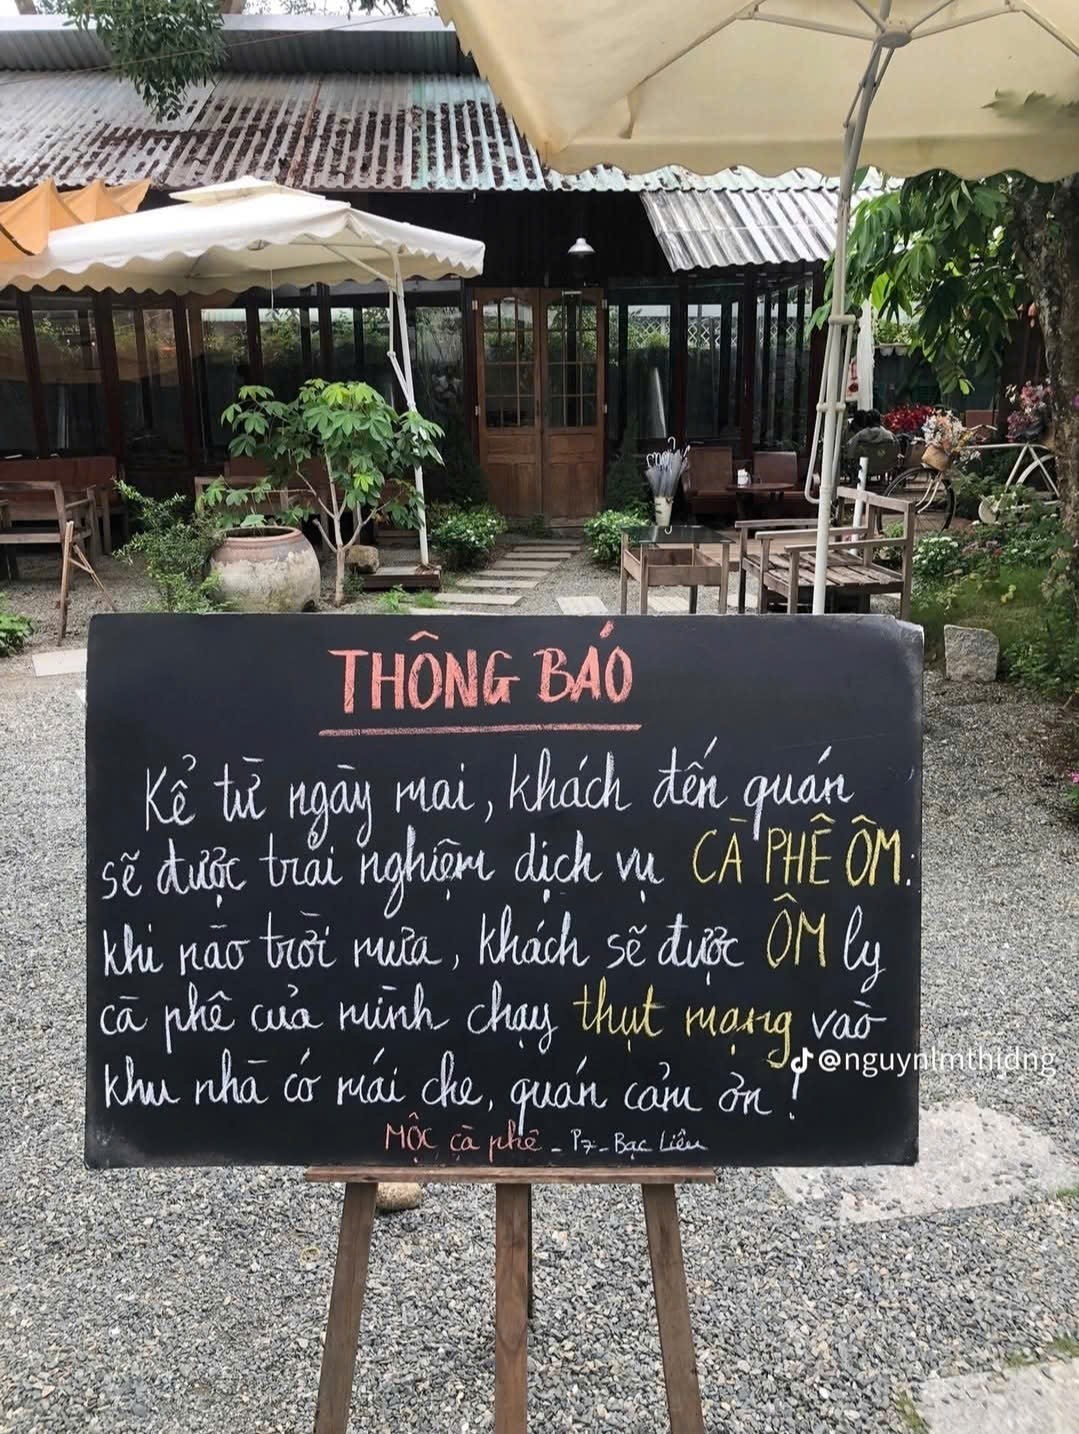 THÔNG BÁO
Kể từ ngày mai, khách đến quán
sẽ được trải nghiệm dịch vụ CÀ PHÊ ÔM:
khi nào trời mưa, khách sẽ được ÔM ly
cà phê của mình chạy thụt mạng vào
khu nhà có mái che, quán cảm ơn!
MỘC cà phê - P7 - Bạc Liêu
@nguynlmthjdng